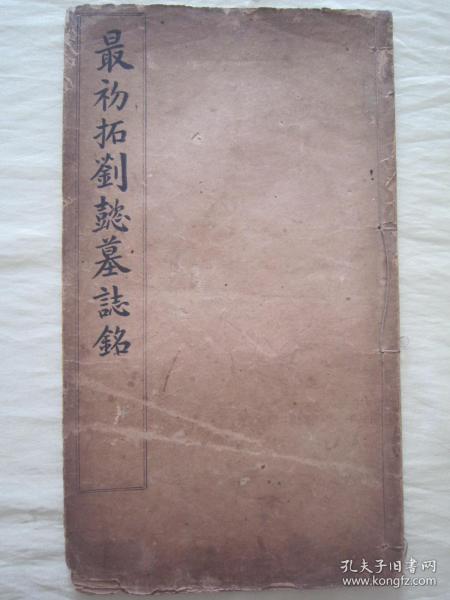 最初拓劉懿墓誌銘
孔夫子旧书网
www.kongfz.com